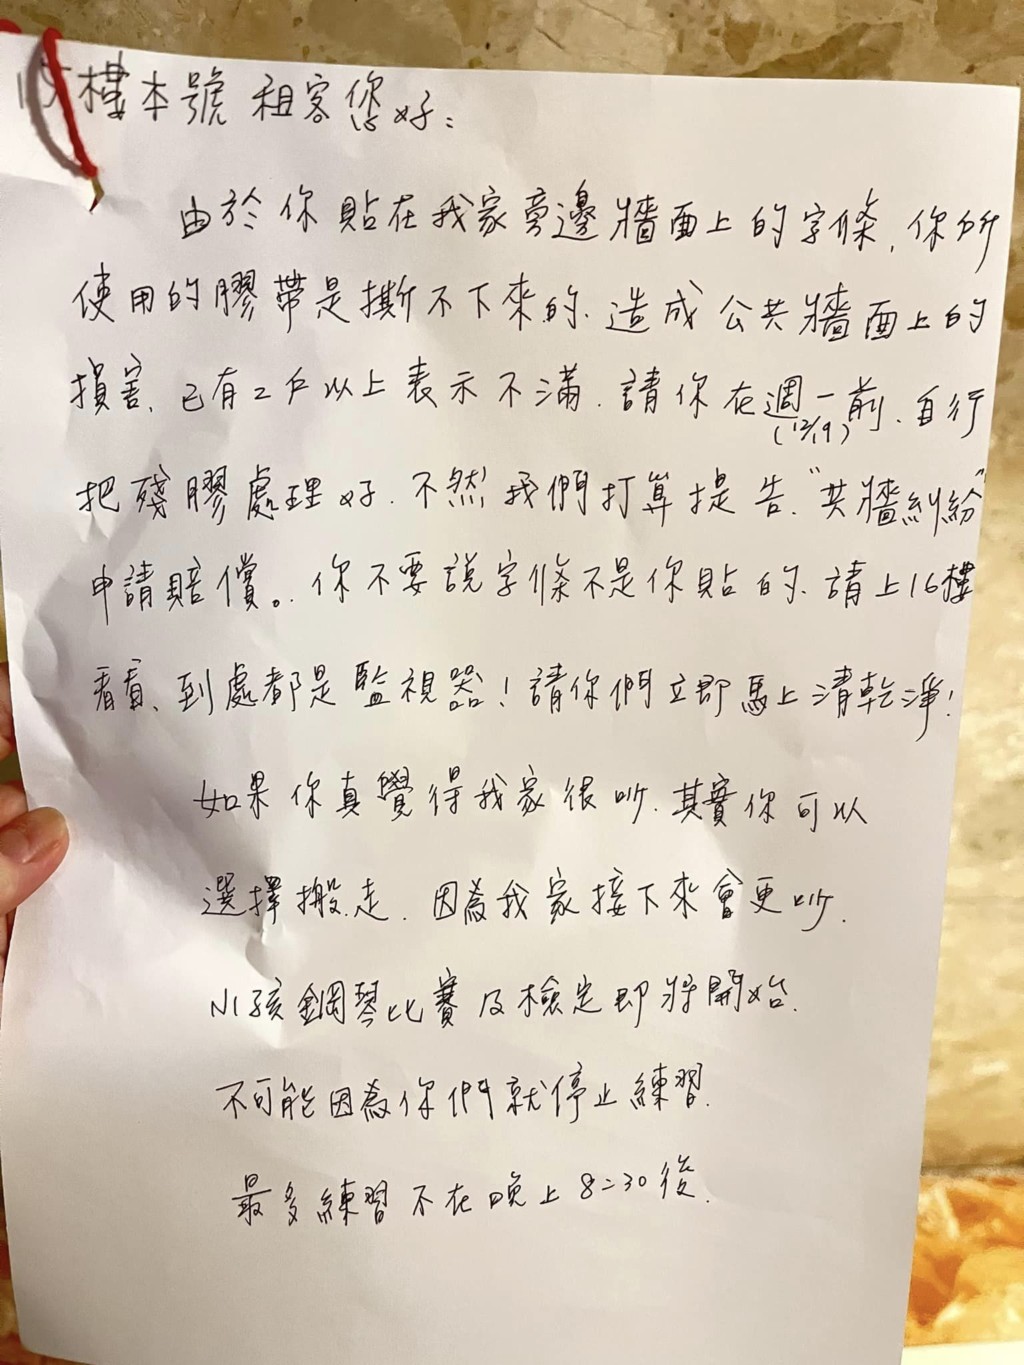 15樓本號 租客您好:
由於你貼在我家旁邊牆面上的字條, 你所
使用的膠帶是撕不下來的、造成公共牆面上的
損害、已有2戶以上表示不滿、請你在週一前、自行
(12/19)
把殘膠處理好、不然我們打算提告、"共牆糾紛"
申請賠償。. 你不要說字條不是你貼的、請上16樓
看看、到處都是監視器! 請你們立即馬上清乾淨!
如果你真覺得我家很吵、其實你可以
選擇搬走、因為我家接下來會更吵、
小孩鋼琴比賽及檢定即將開始、
不可能因為你們就停止練習、
最多練習不在晚上8:30後、